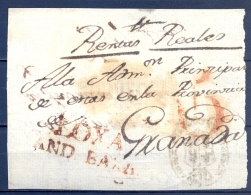 Rentas Reales
Alla Admon Principal
de rentas en la Provincia
de
LOXA
Granada
AND BAXA